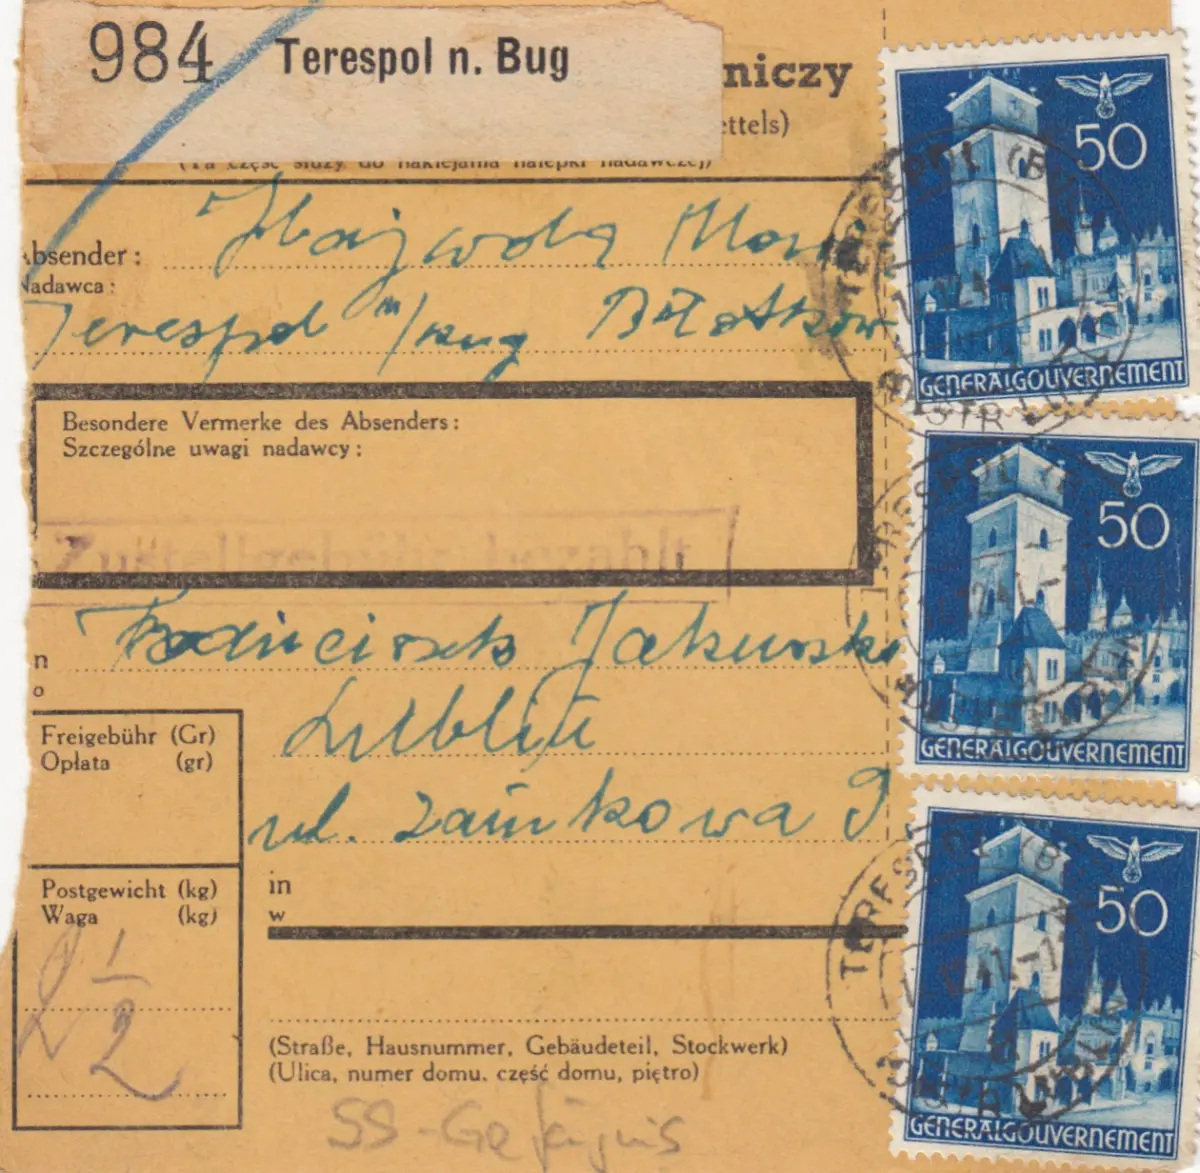 984 Terespol n. Bug
niczy
ettels)
(Ta część służy do naklejania nalepki nadawczej)
Absender:
Nadawca:
Terespol n/Bug
Besondere Vermerke des Absenders:
Szczególne uwagi nadawcy:
Zustellgebühr bezahlt
n
o
Franciszek Jakubsk
Lublin
ul. Zamkowa 9
Freigebühr (Gr)
Opłata (gr)
Postgewicht (kg)
Waga (kg)
2 1/2
in
w
(Straße, Hausnummer, Gebäudeteil, Stockwerk)
(Ulica, numer domu, część domu, piętro)
SS-Gefängnis
50
GENERALGOUVERNEMENT
50
GENERALGOUVERNEMENT
50
GENERALGOUVERNEMENT
TERESPOL (B